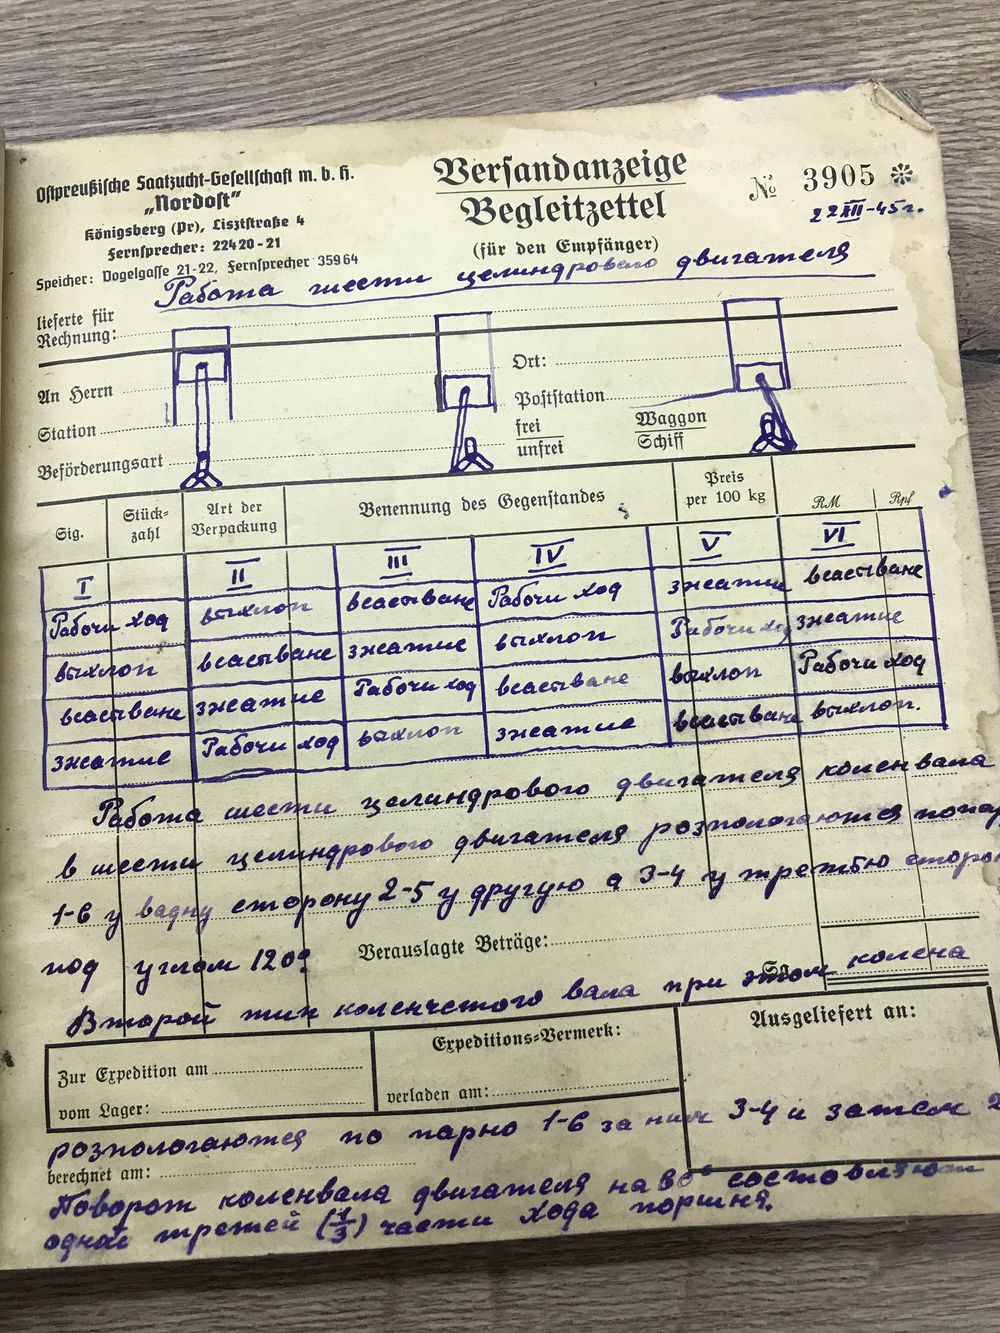 Ostpreußische Saatzucht-Gesellschaft m. b. H.
„Nordost"
Königsberg (Pr), Lisztstraße 4
Fernsprecher: 22420-21
Speicher: Vogelgasse 21-22, Fernsprecher 35964
Versandanzeige
Begleitzettel
(für den Empfänger)
№ 3905
22 XII-45 г.
Работа шести целиндровало двигателя
lieferte für
Rechnung:
An Herrn
Station
Beförderungsart
Ort:
Poststation
frei
unfrei
Waggon
Schiff
Sig. Stück=zahl Art der Verpackung Benennung des Gegenstandes Preis per 100 kg RM Rpf
I II III IV V VI
Рабочи ход выхлоп всастване Рабочи ход зжатие всастване
выхлоп всастване зжатие выхлоп Рабочи ход зжатие
всастване зжатие Рабочи ход всастване выхлоп Рабочи ход
зжатие Рабочи ход выхлоп зжатие всастване выхлоп.
Работа шести целиндрового двигателя коленвала
в шести целиндрового двигателя розпологаютса
1-6 у вадну сторону 2-5 у другую а 3-4 у третью
под углом 120°
Verauslagte Beträge:
Второй тип коленчетого вала при этом колена
Zur Expedition am
vom Lager:
Expeditions=Vermerk:
verladen am:
Ausgeliefert an:
розпологаются по парно 1-6 за ним 3-4 и затем 2
berechnet am:
Поворот коленвала двигателя на 60° состовляют
однай третей (1/3) части хода поршня.